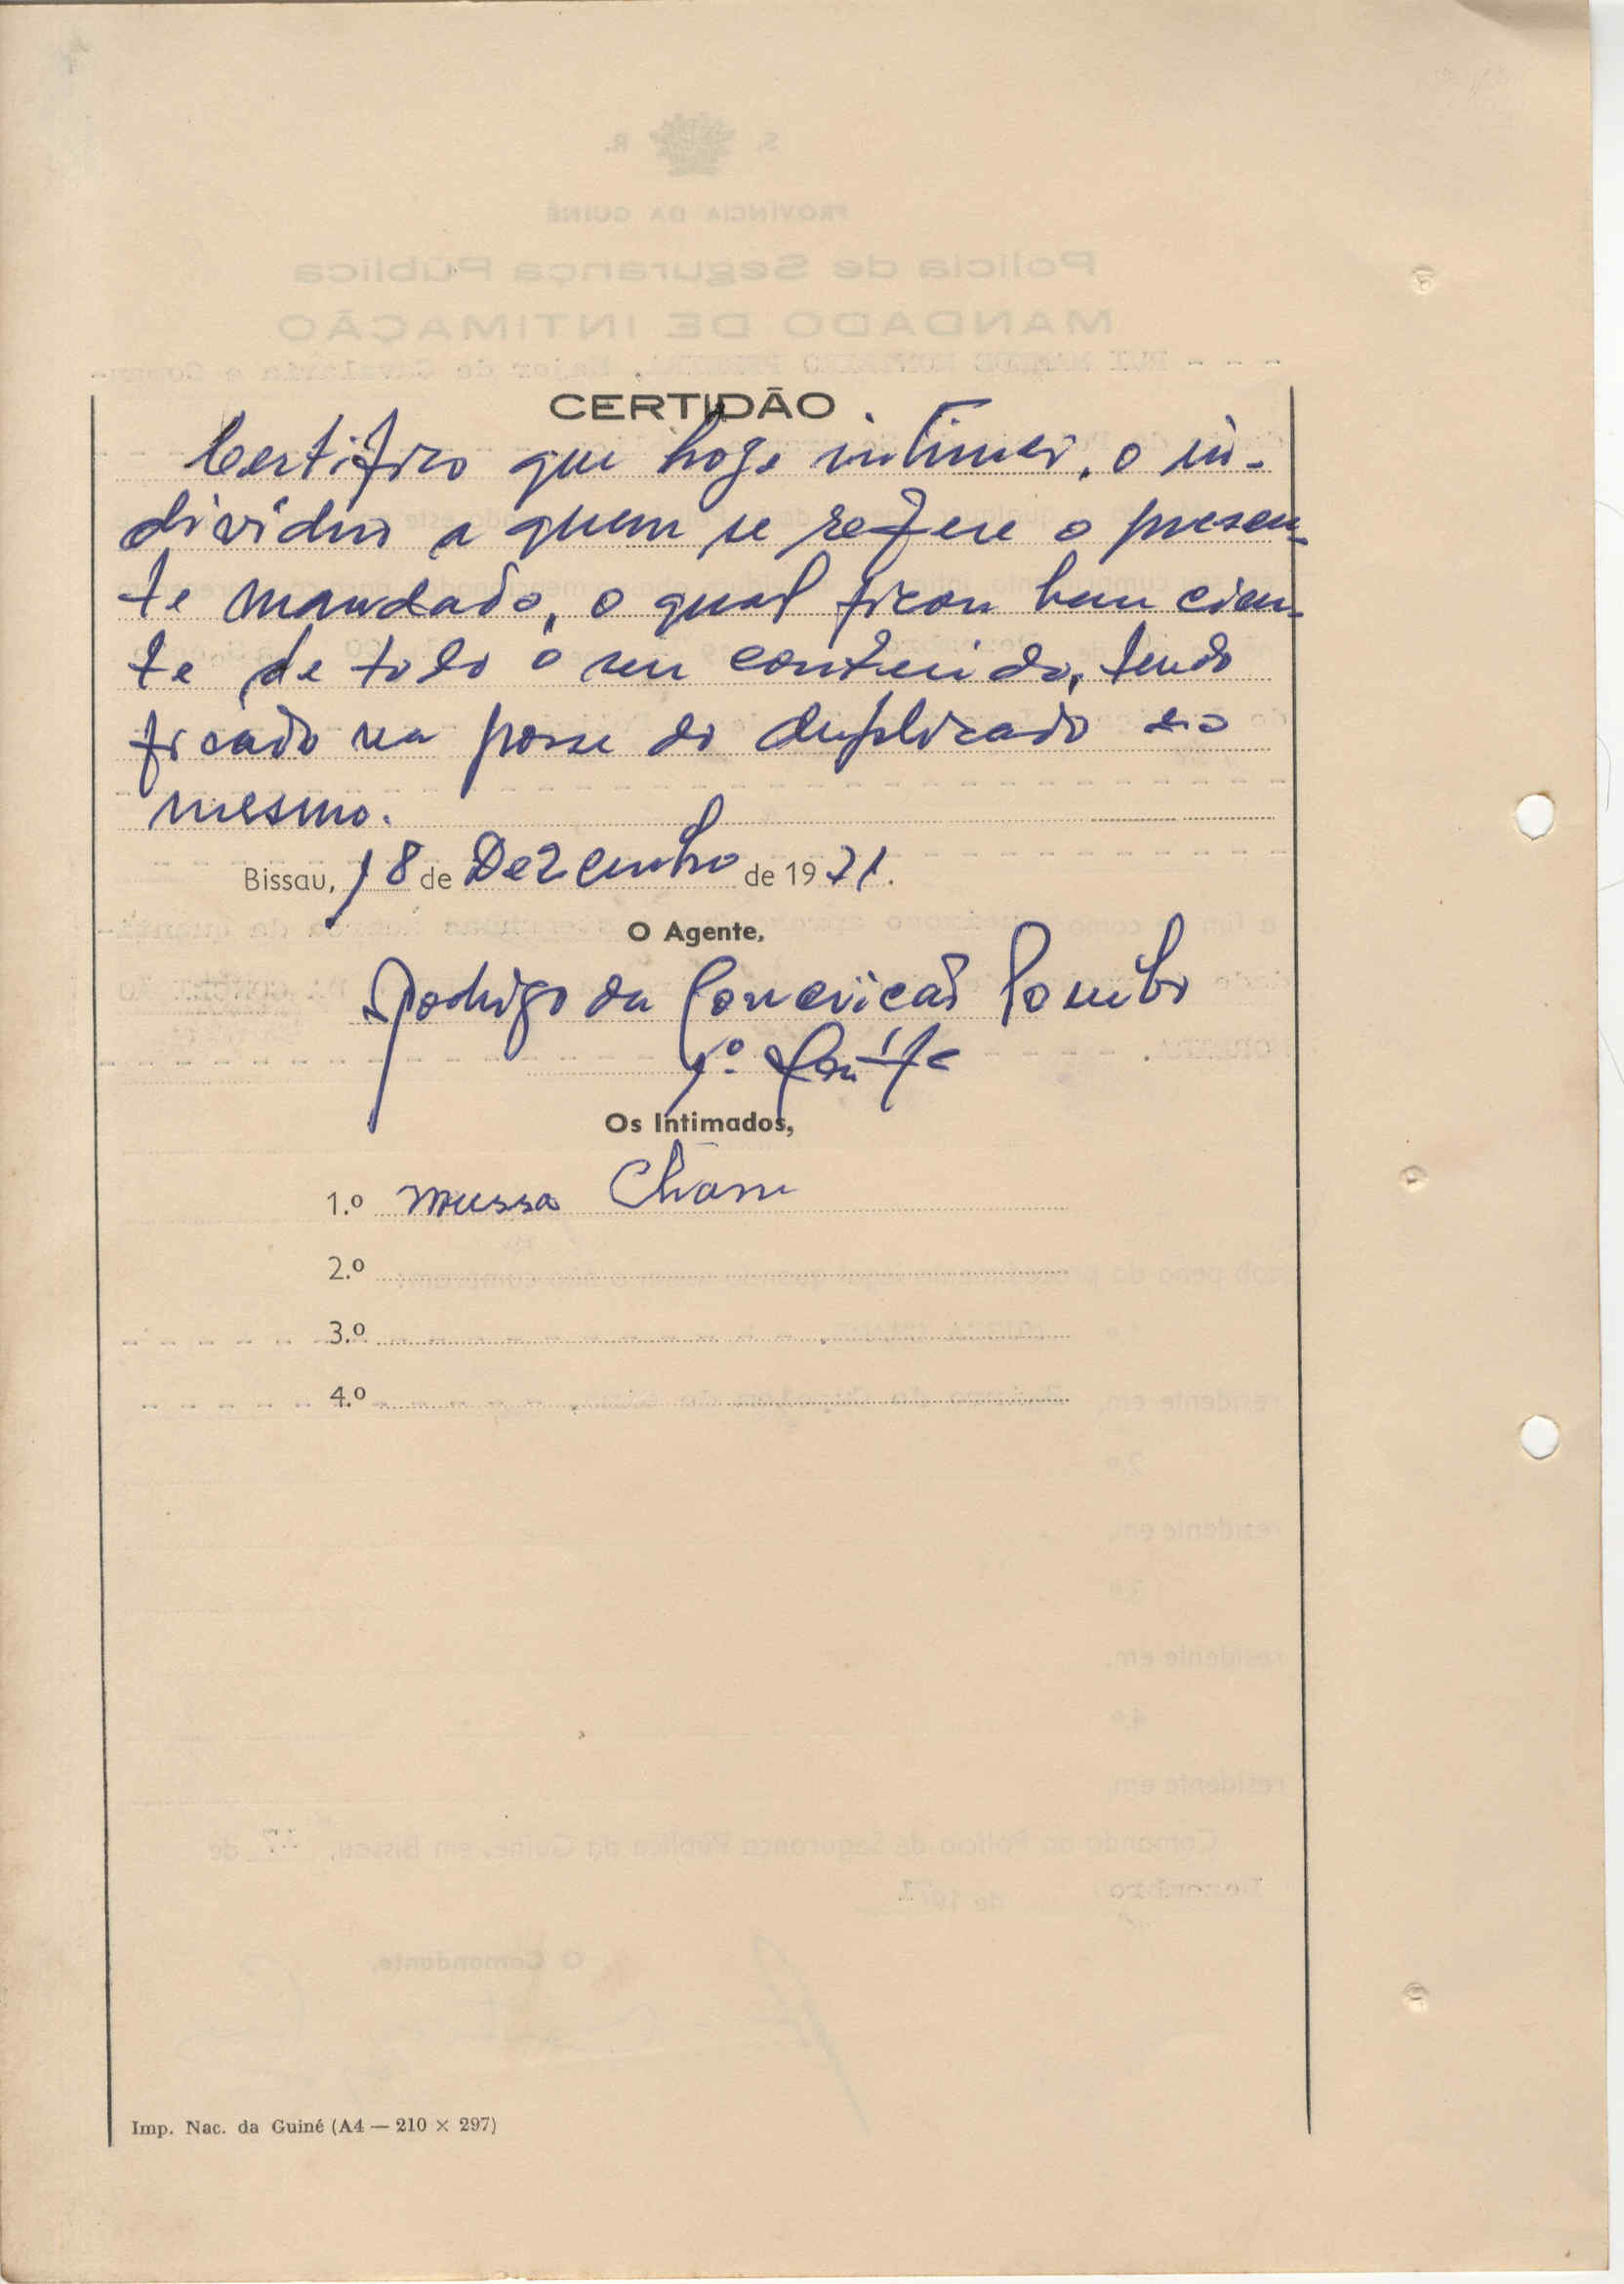 CERTIDÃO
Certifico que hoje intimei, o in-
dividuo a quem se refere o presen-
te mandado, o qual ficou bem cien-
te de todo o seu conteúdo, tendo
ficado na posse do duplicado do
mesmo.
Bissau, 18 de Dezembro de 1971.
O Agente,
Rodrigo da Conceição Pombo
1.º
Os Intimados,
1.º Mussa Cham
2.º
3.º
4.º
Imp. Nac. da Guiné (A4 — 210 × 297)